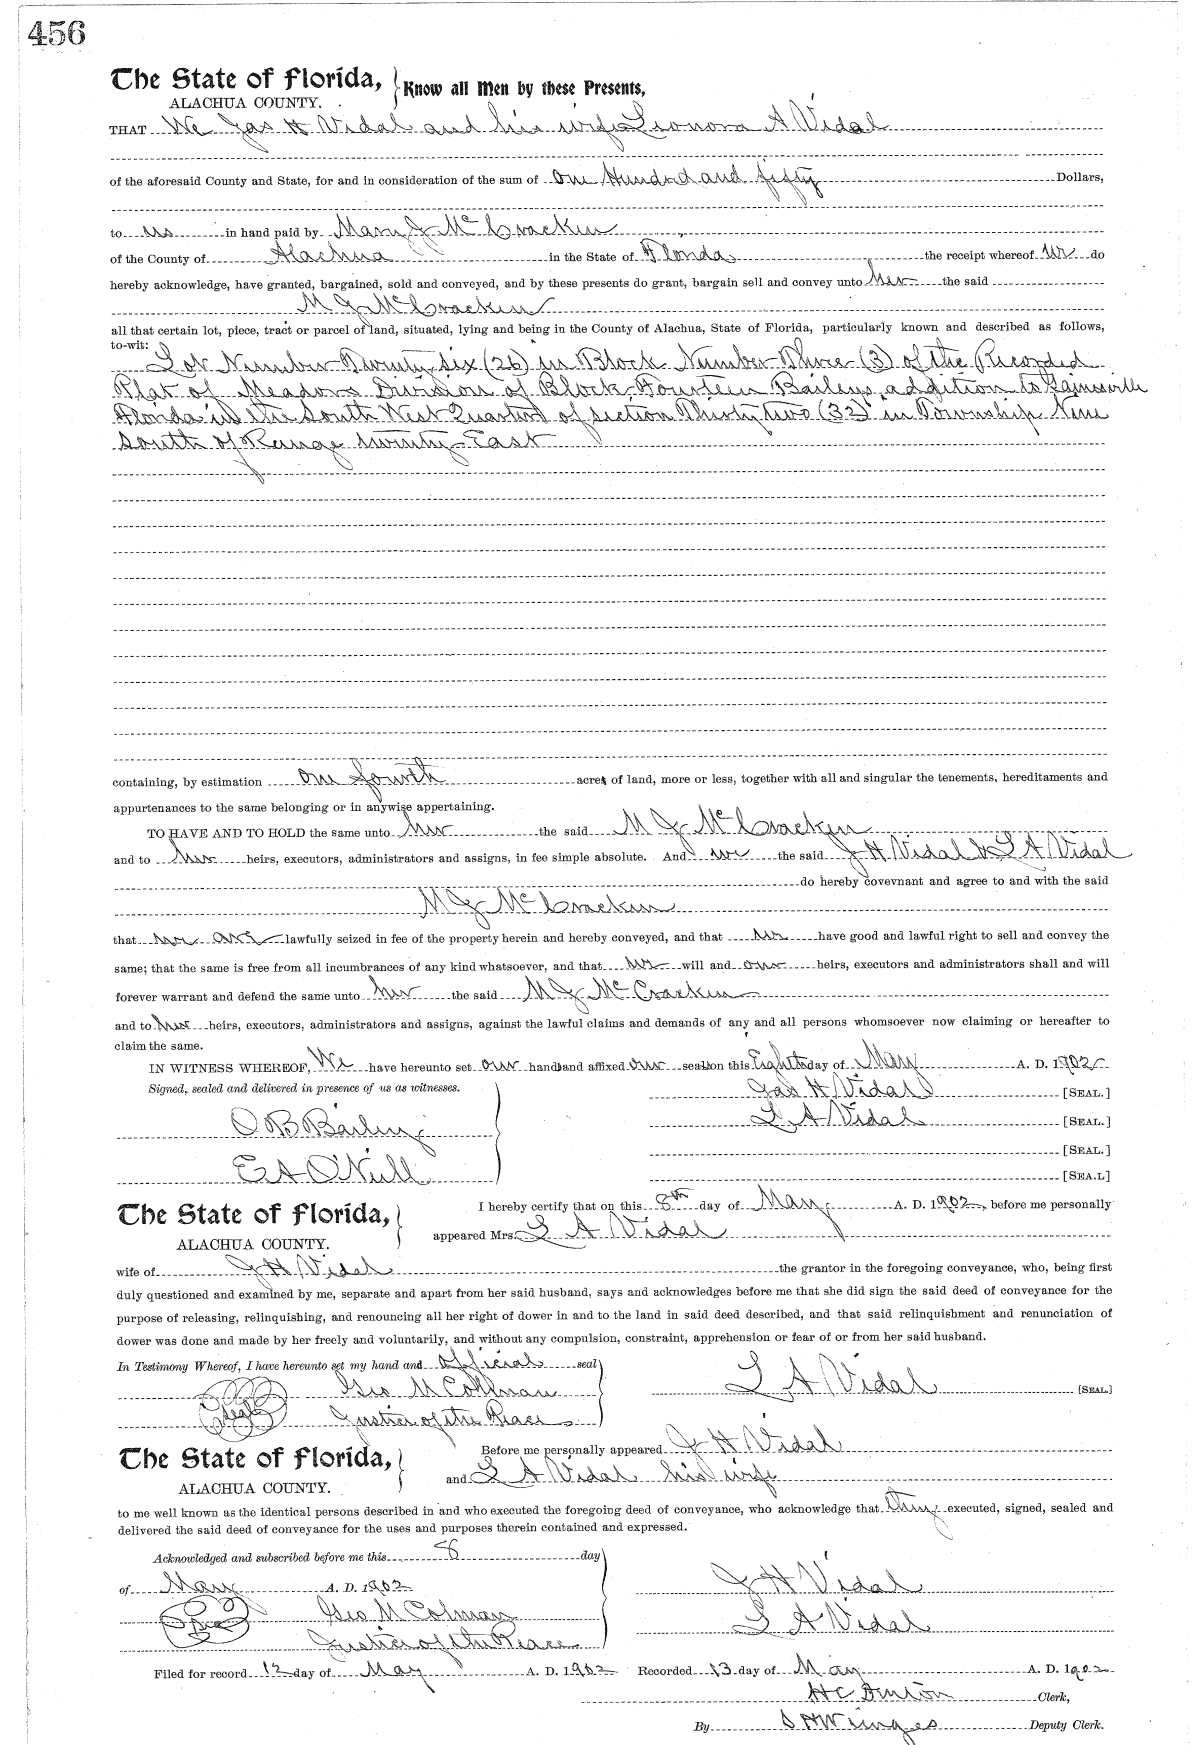 456
The State of Florida, Know all Men by these Presents,
ALACHUA COUNTY.
THAT We Jas H Vidal and his wife Leonora A Vidal
of the aforesaid County and State, for and in consideration of the sum of One Hundred and fifty Dollars,
to us in hand paid by Mary J McCracken
of the County of Alachua in the State of Florida the receipt whereof we do
hereby acknowledge, have granted, bargained, sold and conveyed, and by these presents do grant, bargain sell and convey unto her the said
M J McCracken
all that certain lot, piece, tract or parcel of land, situated, lying and being in the County of Alachua, State of Florida, particularly known and described as follows,
to-wit:
Lot Number Twenty six (26) in Block Number Three (3) of the Recorded
Plat of Meadors Division of Block Fourteen Baileys addition to Gainesville
Florida in the South West Quarter of section Thirty two (32) in Township Nine
South of Range twenty East
containing, by estimation one fourth acres of land, more or less, together with all and singular the tenements, hereditaments and
appurtenances to the same belonging or in anywise appertaining.
TO HAVE AND TO HOLD the same unto her the said M J McCracken
and to her heirs, executors, administrators and assigns, in fee simple absolute. And we the said J H Vidal & L A Vidal
do hereby covevnant and agree to and with the said
M J McCracken
that we are lawfully seized in fee of the property herein and hereby conveyed, and that we have good and lawful right to sell and convey the
same; that the same is free from all incumbrances of any kind whatsoever, and that we will and our heirs, executors and administrators shall and will
forever warrant and defend the same unto her the said M J McCracken
and to her heirs, executors, administrators and assigns, against the lawful claims and demands of any and all persons whomsoever now claiming or hereafter to
claim the same.
IN WITNESS WHEREOF, We have hereunto set our hands and affixed our seals on this Eighth day of May A. D. 1902
Signed, sealed and delivered in presence of us as witnesses. Jas H Vidal [SEAL.]
L A Vidal [SEAL.]
O B Bailey
[SEAL.]
E A O'Neill [SEA.L]
The State of Florida, I hereby certify that on this 8th day of May A. D. 1902, before me personally
ALACHUA COUNTY. appeared Mrs. L A Vidal
wife of J H Vidal the grantor in the foregoing conveyance, who, being first
duly questioned and examined by me, separate and apart from her said husband, says and acknowledges before me that she did sign the said deed of conveyance for the
purpose of releasing, relinquishing, and renouncing all her right of dower in and to the land in said deed described, and that said relinquishment and renunciation of
dower was done and made by her freely and voluntarily, and without any compulsion, constraint, apprehension or fear of or from her said husband.
In Testimony Whereof, I have hereunto set my hand and official seal
Geo M Collman L A Vidal [SEAL]
Seal Justice of the Peace
The State of Florida, Before me personally appeared J H Vidal
ALACHUA COUNTY. and L A Vidal his wife
to me well known as the identical persons described in and who executed the foregoing deed of conveyance, who acknowledge that they executed, signed, sealed and
delivered the said deed of conveyance for the uses and purposes therein contained and expressed.
Acknowledged and subscribed before me this 8 day
of May A. D. 1902 J H Vidal
Geo M Colman L A Vidal
Justice of the Peace
Filed for record 12 day of May A. D. 1902 Recorded 13 day of May A. D. 1902
H C Denton Clerk,
By S H Wienges Deputy Clerk.